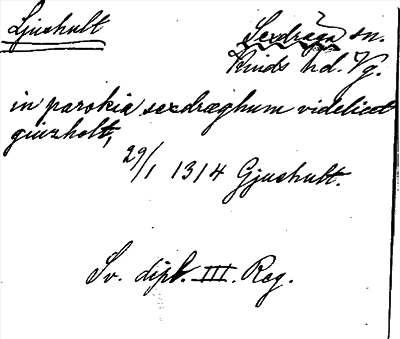 Ljushult
Sexdräga sn.
Kinds hd. Vg.
in parokia sexdræghum videlicet
giuzholt,
29/1 1314 Gjushult.
Sv. dipl. III. Reg.